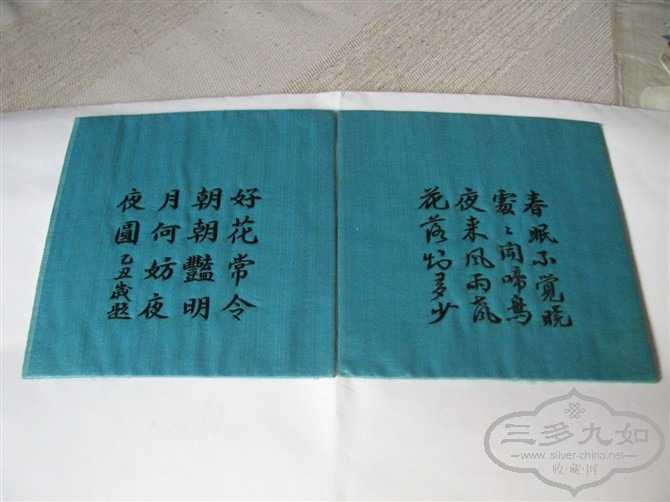 春眠不覺曉
處々聞啼鳥
夜来風雨聲
花落知多少
好花常令
朝朝豔明
月何妨夜
夜圓
乙丑歲題
三多九如
www.silver-china.net
收藏网